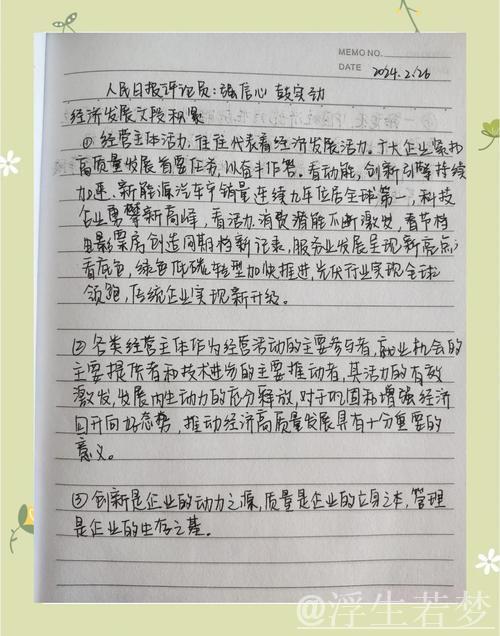 MEMO NO.
DATE 2024.2.26
人民日报评论员:强信心 鼓实劲
经济发展文段积累
① 经营主体活力,往往代表着经济发展活力。广大企业紧扣
高质量发展首要任务,以奋斗作答。看动能,创新引擎持续
加速,新能源汽车产销量连续九年位居全球第一,科技
企业勇攀新高峰,看活力,消费潜能不断激发,春节档
电影票房创造同期档新记录,服务业发展呈现新亮点;
看底色,绿色低碳转型加快推进,光伏行业实现全球
领跑,传统企业实现新升级。
② 各类经营主体作为经营活动的主要参与者,就业机会的
主要提供者和技术进步的主要推动者,其活力的有效
激发,发展内生动力的充分释放,对于巩固和增强经济
回升向好态势,推动经济高质量发展具有十分重要的
意义。
③ 创新是企业的动力之源,质量是企业的立身之本,管理
是企业的生存之基。
@浮生若梦